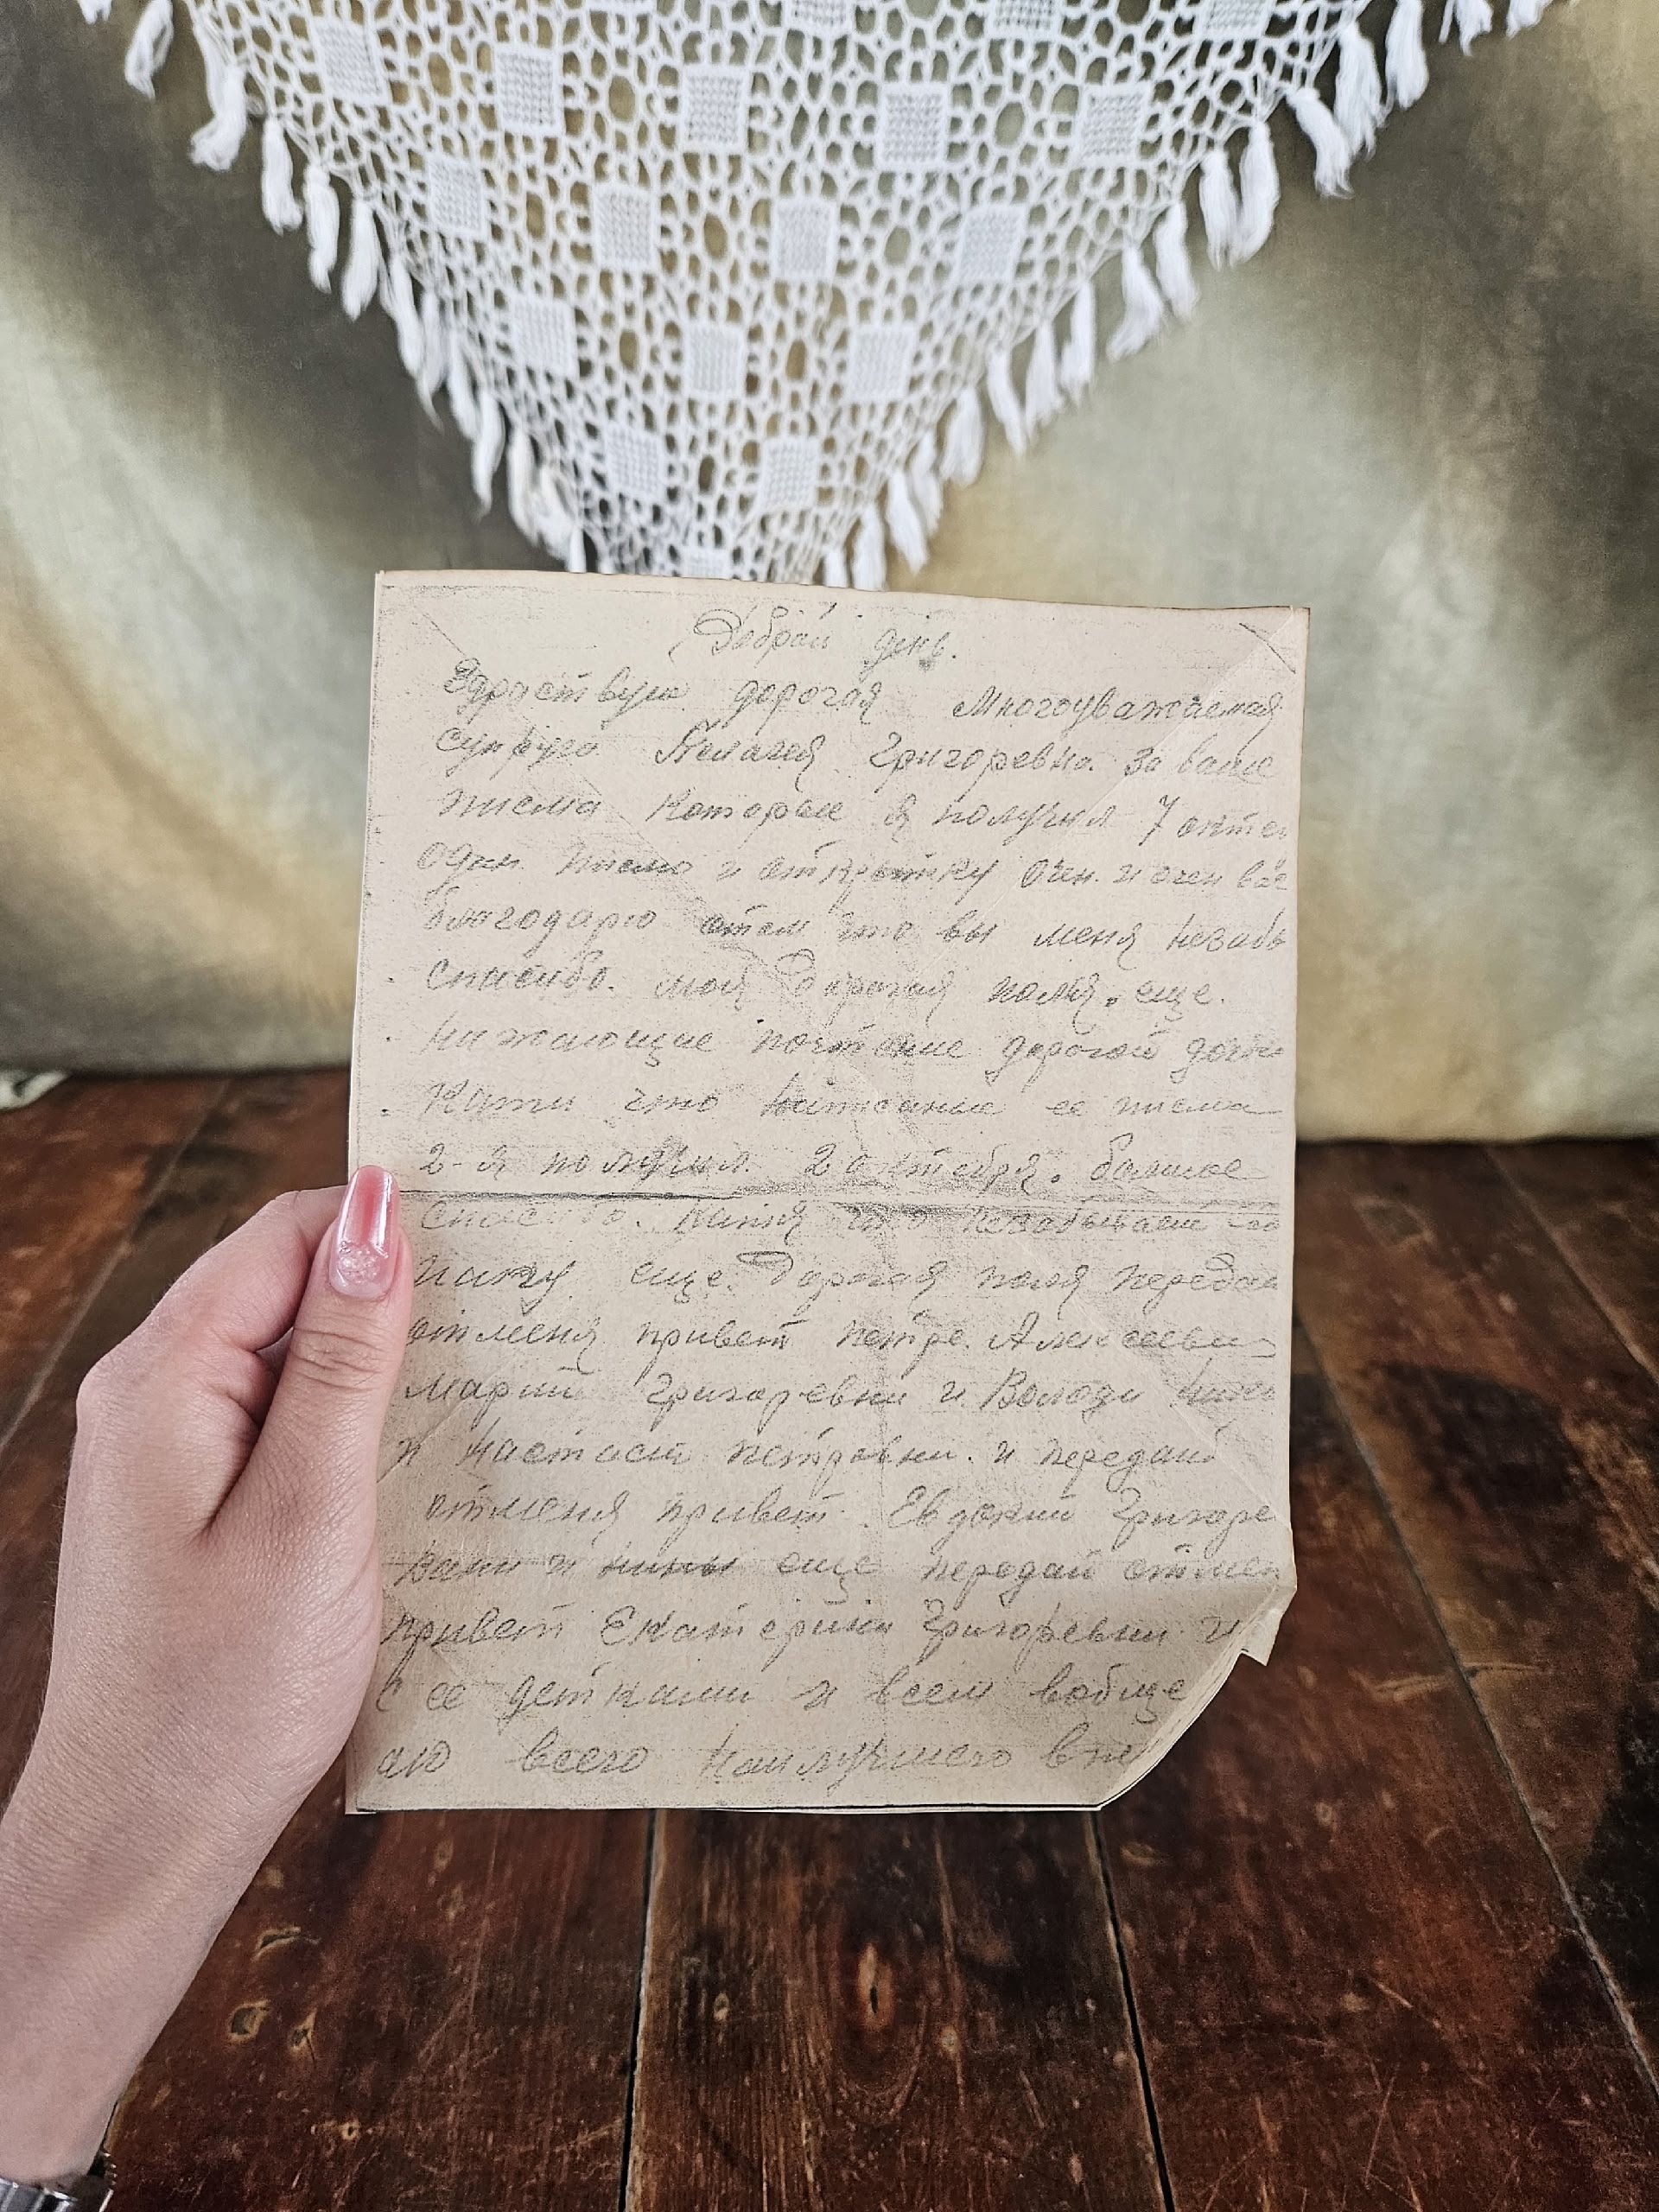 Добрай день.
Здраствуи дорогая Многоуважаемая
супруга Пелагея Григоревна за ваше
писма которые я получил 7 октеб
один писмо и открытку очен и очен вас
благодарю отом что вы меня незабы
спасибо. моя Дорогая поля. еще.
ни жающие почтение дорогой дочки
Кати что написание ее писма
2-я получил 2 октебря. болшое
спасибо. Катя что незабываеш
папку еще. Дорогая поля передай
отменя привет петре. Алексееви
Марии Григоревни и Володи
и Настаси петровни. и передай
отменя привет. Евдокии Григоре
вани и нины еще передай отмен
привет Екатерини Григоревни и
с ее детками и всем вобще
аю всего наилучшего